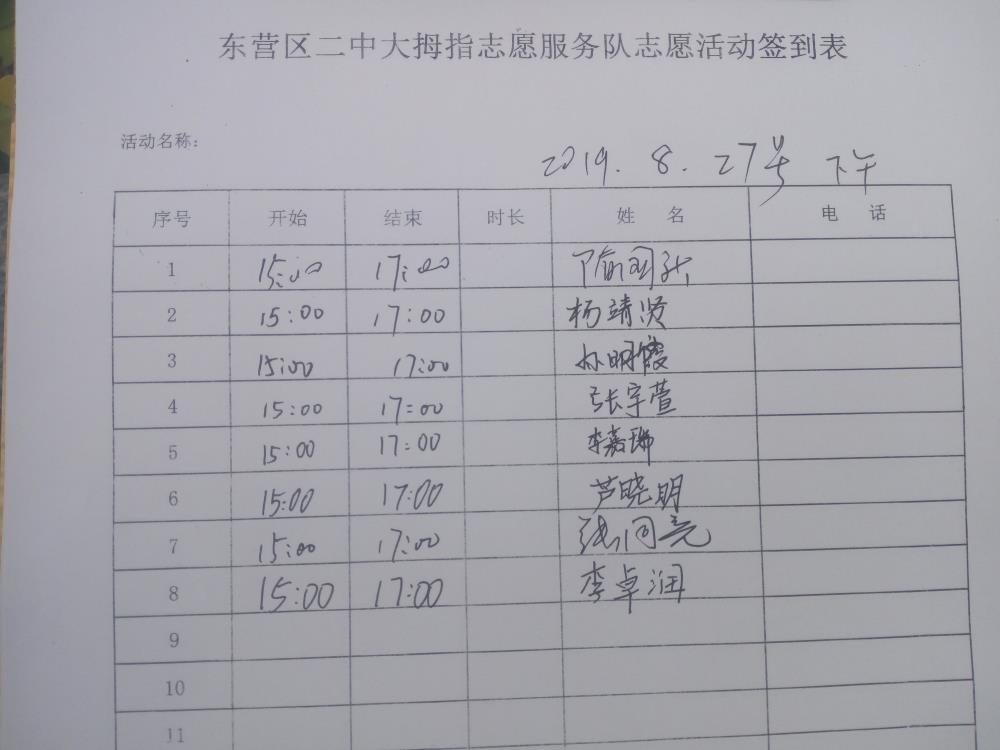 东营区二中大拇指志愿服务队志愿活动签到表
活动名称：
2019.8.27号 下午
序号 开始 结束 时长 姓名 电话
1 15:00 17:00
2 15:00 17:00 杨靖贤
3 15:00 17:00 孙明霞
4 15:00 17:00 张宇萱
5 15:00 17:00 李嘉瑞
6 15:00 17:00 芦晓明
7 15:00 17:00
8 15:00 17:00 李卓润
9
10
11